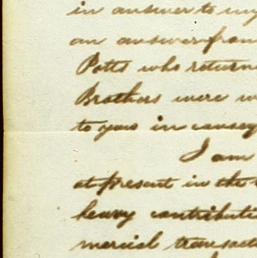 in answer to my
an answer from
Potts who return
Brothers were w
to you in
I am
at present in the
heavy contributi
mercial transact